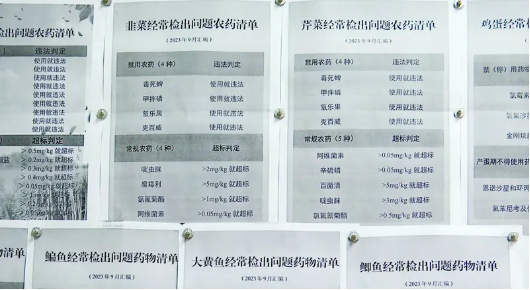 出问题农药清单
违法判定
使用就违法
使用就违法
使用就违法
使用就违法
使用就违法
使用就违法
使用就违法
超标判定
> 0.5mg/kg 就超标
> 0.2mg/kg 就超标
韭菜经常检出问题农药清单
(2023 年 9 月汇编)
禁用农药(4 种) 违法判定
毒死蜱 使用就违法
甲拌磷 使用就违法
氧乐果 使用就违法
克百威 使用就违法
常规农药(4 种) 超标判定
啶虫脒 >2mg/kg 就超标
腐霉利 >5mg/kg 就超标
氯氰菊酯 >1mg/kg 就超标
阿维菌素 >0.05mg/kg 就超标
芹菜经常检出问题农药清单
(2023 年 9 月汇编)
禁用农药(4 种) 违法判定
毒死蜱 使用就违法
甲拌磷 使用就违法
氧乐果 使用就违法
克百威 使用就违法
常规农药(5 种) 超标判定
阿维菌素 >0.05mg/kg 就超标
辛硫磷 >0.05mg/kg 就超标
百菌清 >5mg/kg 就超标
啶虫脒 >3mg/kg 就超标
氯氟氰菊酯 >0.5mg/kg 就超标
鸡蛋经常检
禁(停)用药物
氯霉素
金刚烷
产蛋期不得使用药
恩诺沙星和环丙
氟苯尼考及
药物清单
鳊鱼经常检出问题药物清单
(2023 年 9 月汇编)
大黄鱼经常检出问题药物清单
(2023 年 9 月汇编)
鲫鱼经常检出问题药物清单
(2023 年 9 月汇编)